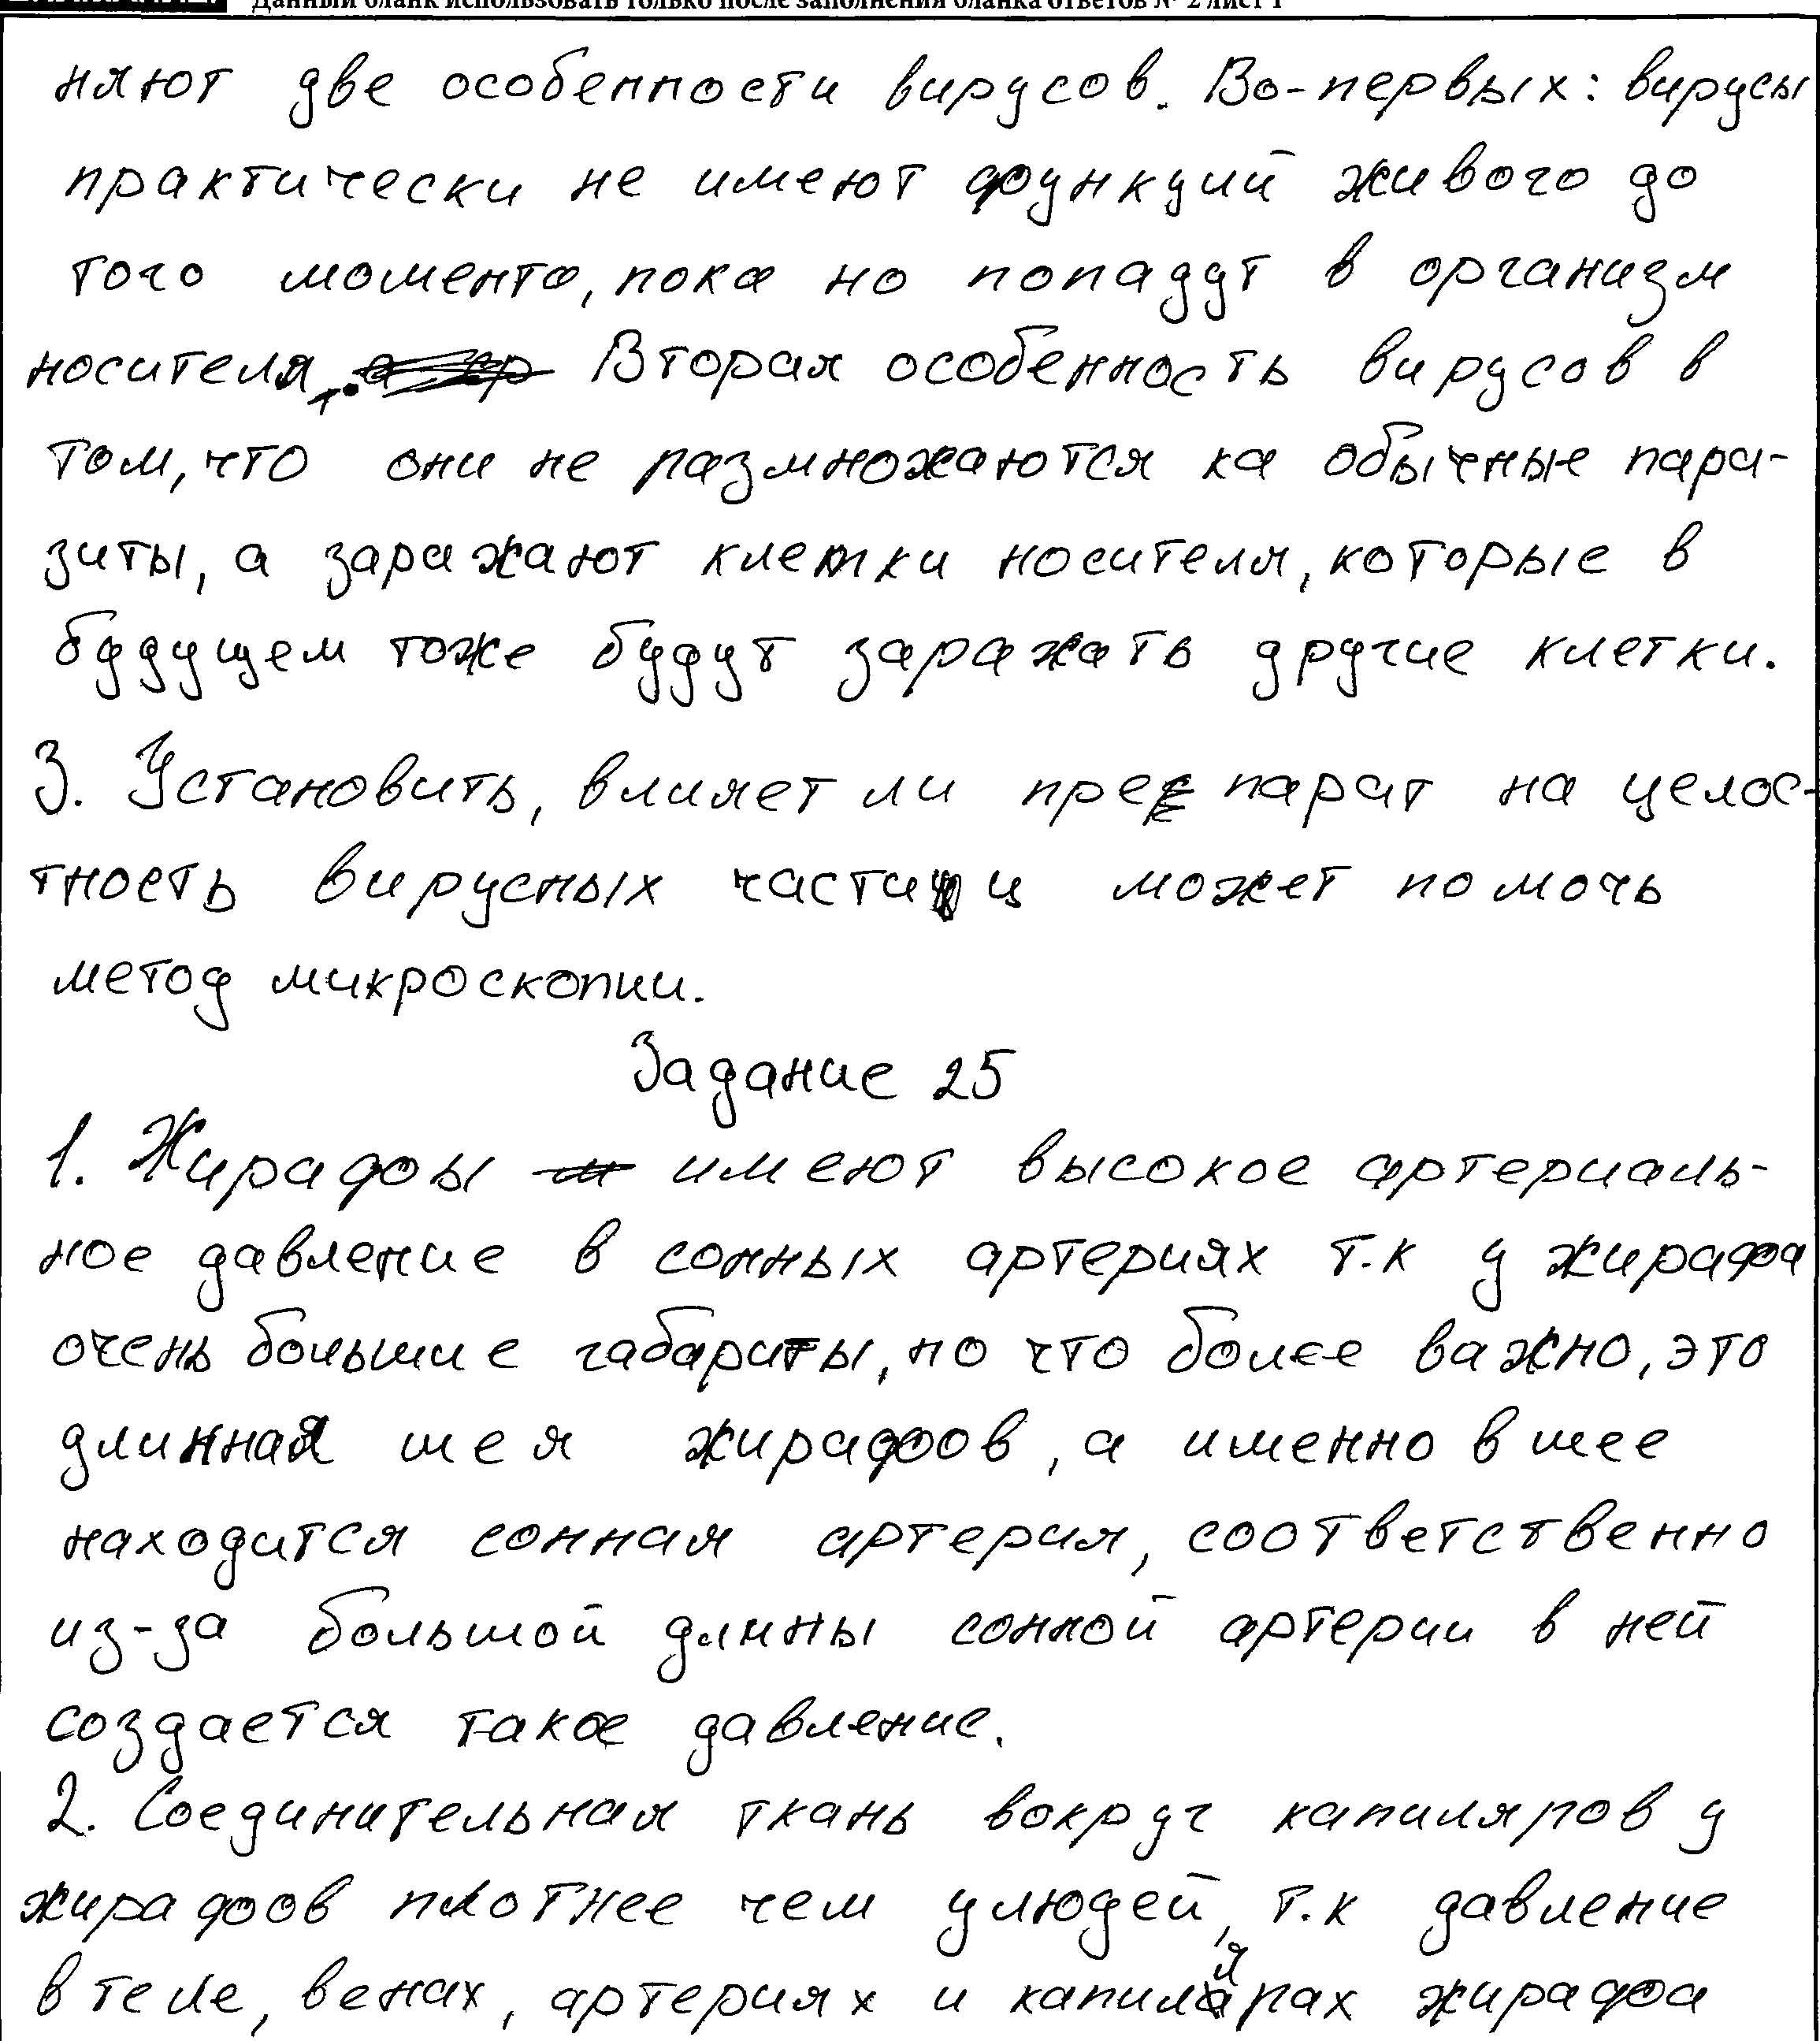 Данный бланк использовать только после заполнения бланка ответов № 2 лист 1
няют две особенности вирусов. Во-первых: вирусы
практически не имеют функций живого до
того момента, пока но попадут в организм
носителя. Вторая особенность вирусов в
том, что они не размножаются ка обычные пара-
зиты, а заражают клетки носителя, которые в
будущем тоже будут заражать другие клетки.
3. Установить, влияет ли препарат на целос-
тность вирусных частиц может помочь
метод микроскопии.
Задание 25
1. Жирафы имеют высокое артериаль-
ное давление в сонных артериях т.к у жирафа
очень большие габариты, но что более важно, это
длинная шея жирафов, а именно в шее
находится сонная артерия, соответственно
из-за большой длины сонной артерии в ней
создается такое давление.
2. Соединительная ткань вокруг капиляров у
жирафов плотнее чем у людей, т.к давление
в теле, венах, артериях и капилярах жирафа